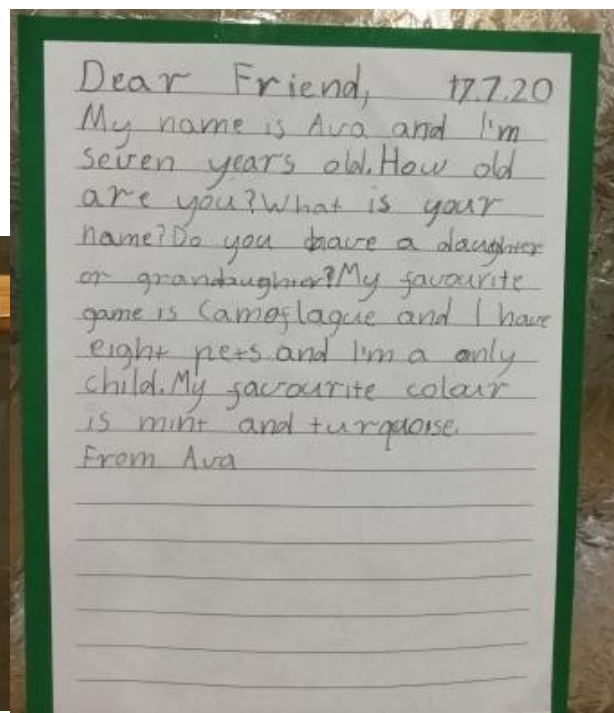 Dear Friend, 17.7.20
My name is Ava and I'm
seven years old. How old
are you? What is your
name? Do you have a daughter
or grandaughter? My favourite
game is Camoflague and I have
eight pets and I'm a only
child. My favourite colour
is mint and turquoise.
From Ava